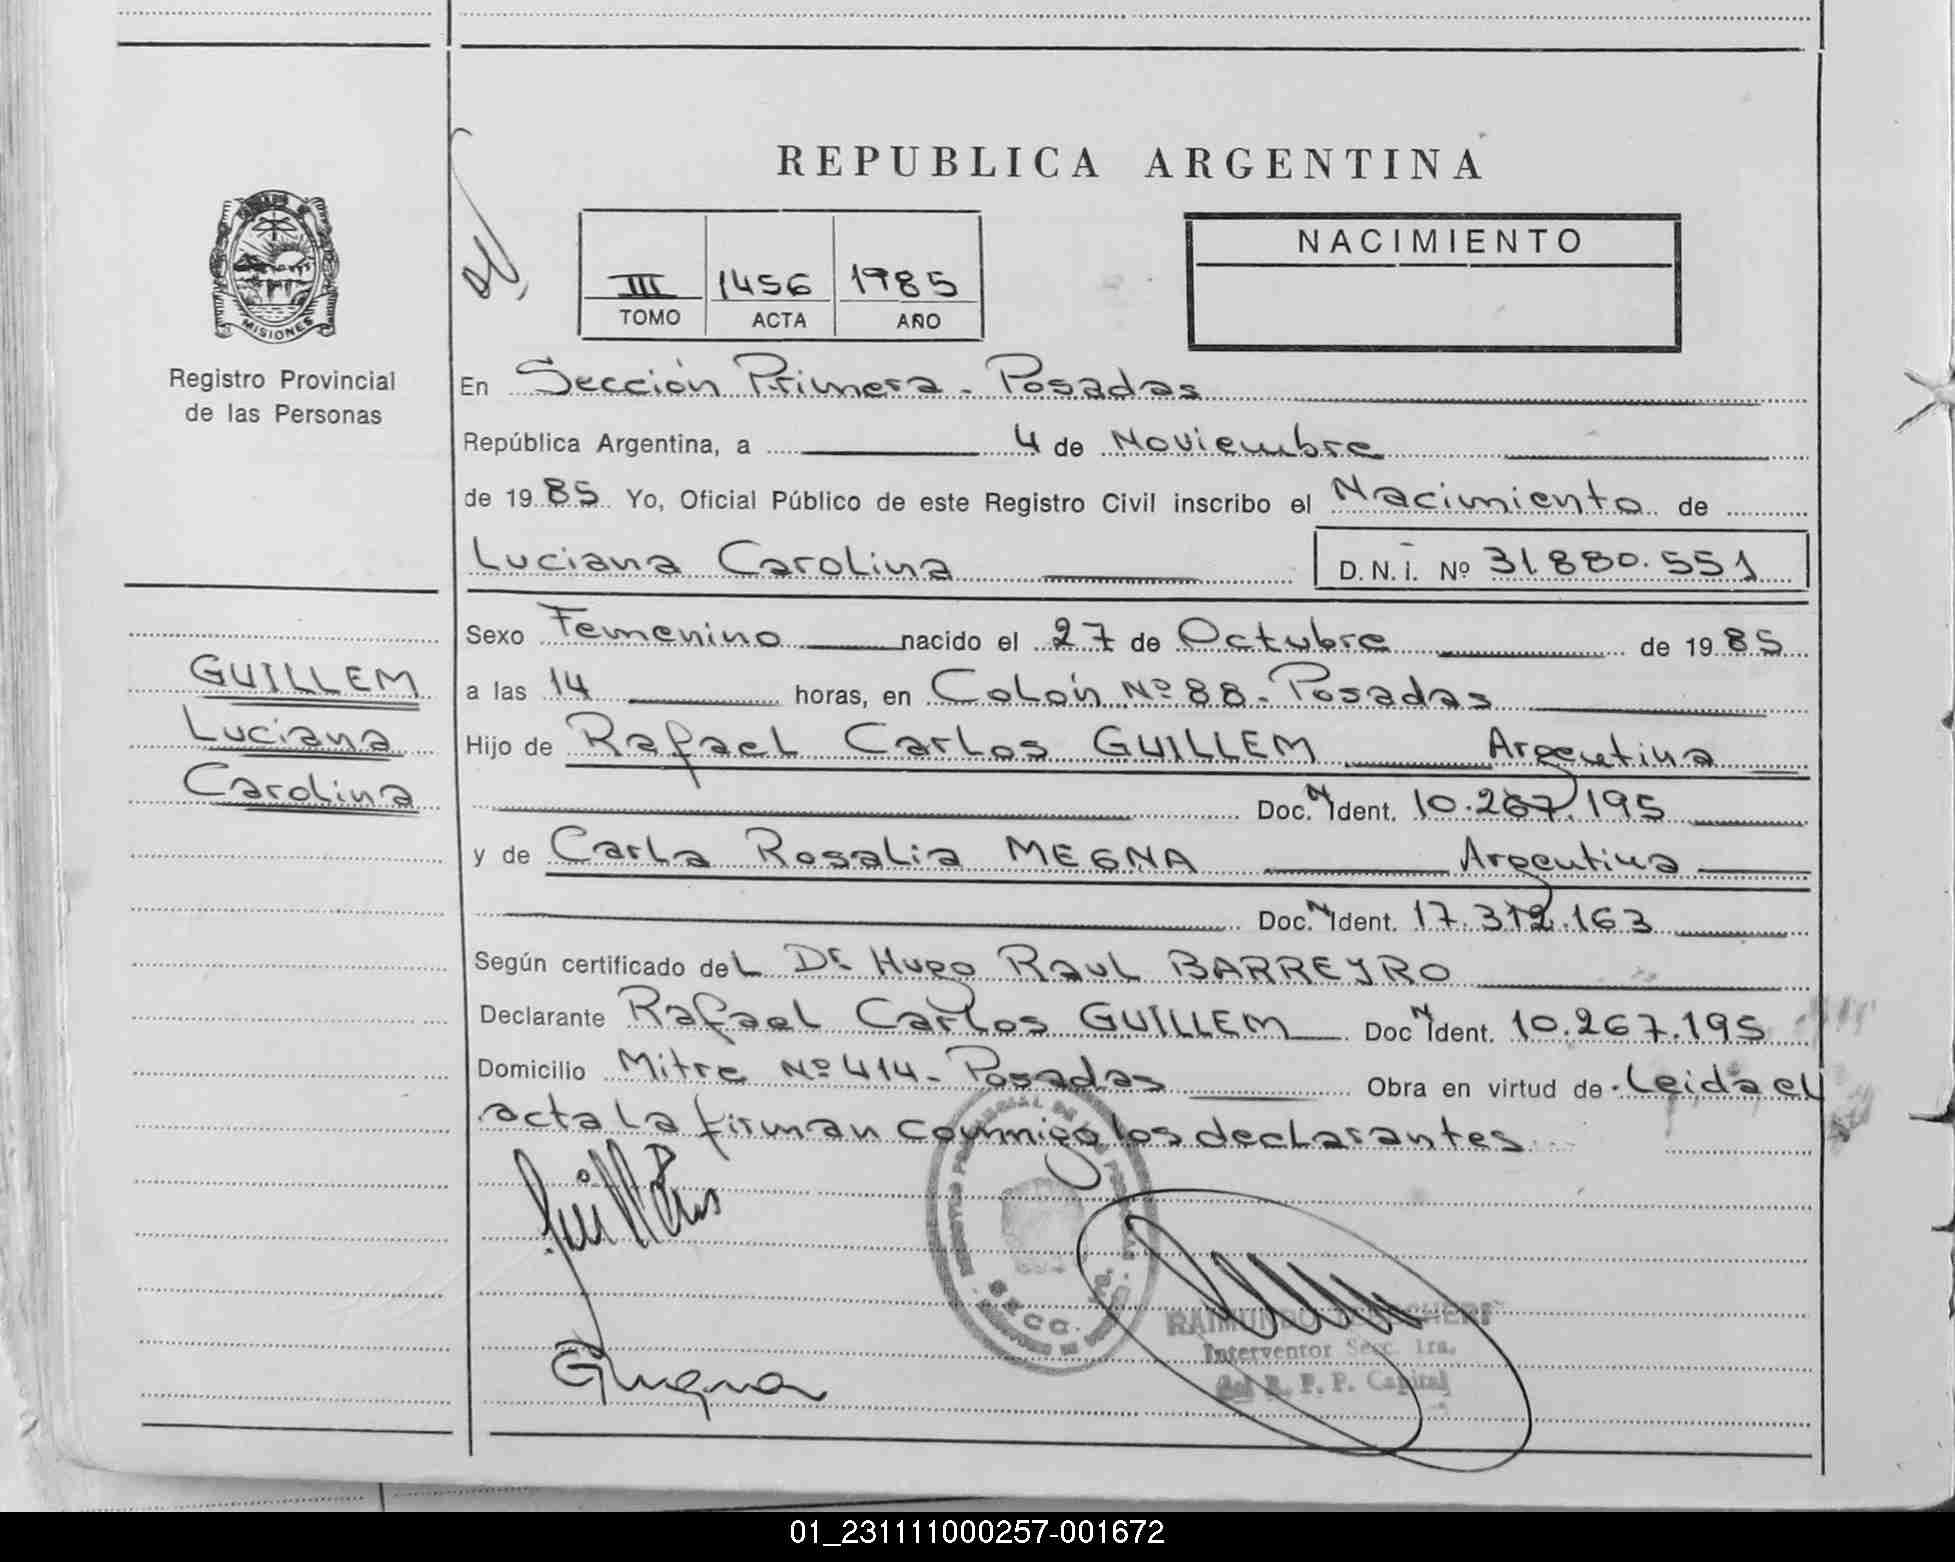 REPUBLICA ARGENTINA
MISIONES
Registro Provincial
de las Personas
III 1456 1985
TOMO ACTA AÑO
NACIMIENTO
En Sección Primera - Posadas
República Argentina, a 4 de Noviembre
de 1985 Yo, Oficial Público de este Registro Civil inscribo el Nacimiento de
Luciana Carolina D.N.I. Nº 31.880.551
Sexo Femenino nacido el 27 de Octubre de 1985
GUILLEM
Luciana
Carolina
a las 14 horas, en Colón Nº 88 - Posadas
Hijo de Rafael Carlos GUILLEM Argentina
Doc. N Ident. 10.267.195
y de Carla Rosalia MEGNA Argentina
Doc. N Ident. 17.312.163
Según certificado del Dr Hugo Raul BARREYRO
Declarante Rafael Carlos GUILLEM Doc N Ident. 10.267.195
Domicilio Mitre Nº 414 - Posadas Obra en virtud de Leida el
acta la firman conmigo los declarantes
SECC.
RAIMUNDO
Interventor Secc. 1ra.
del R. P. P. Capital
01_231111000257-001672